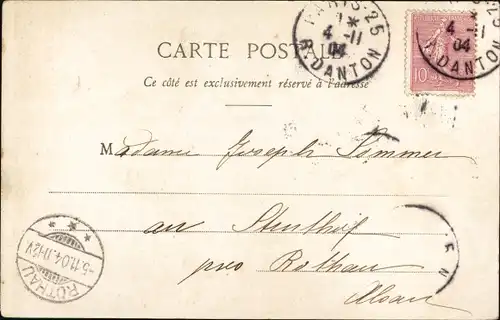 PARIS-25
4-11
04
R. DANTON
4-11
04
R. DANTON
10
CARTE POSTALE
Ce côté est exclusivement réservé à l'adresse
Madame Joseph Sommer
au Struthof
près Rothau
Alsace
ROTHAU
5.11.04.11-12V.